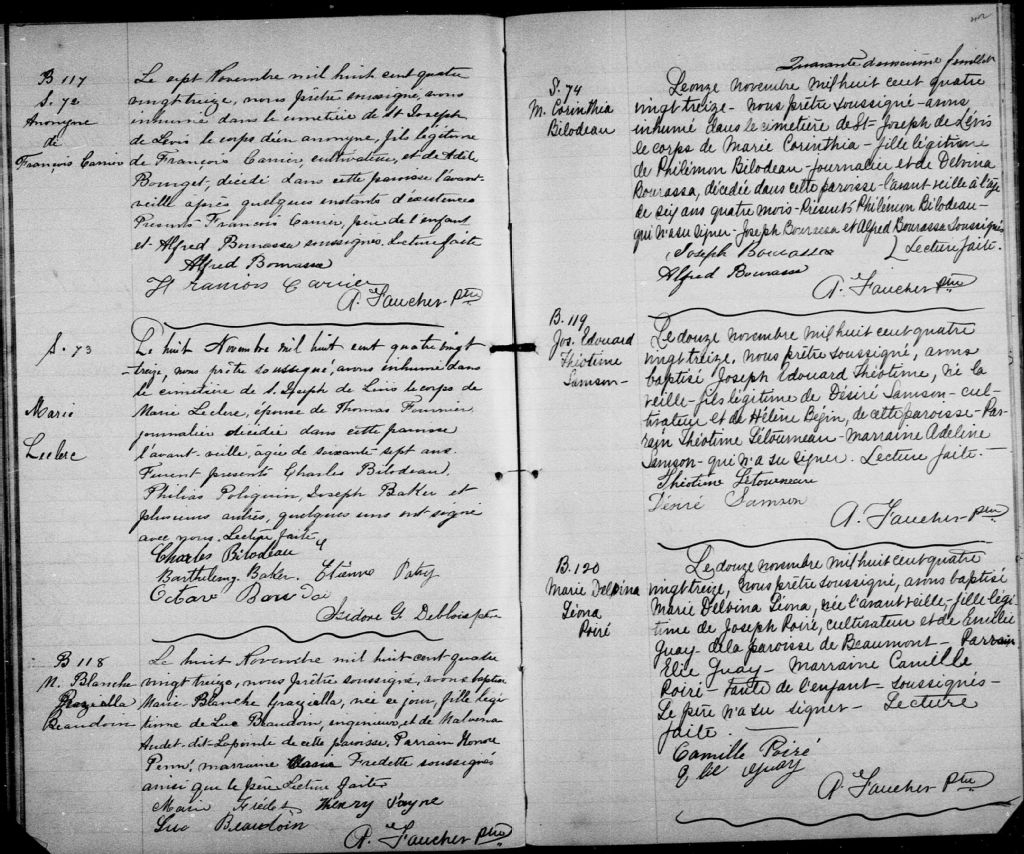 B 117
S. 72
Anonyme
de
François Carrier
Le sept Novembre mil huit cent quatre
vingt treize, nous prêtre soussigné, avons
inhumé dans le cimetière de St Joseph
de Lévis le corps d'un anonyme, fils légitime
de François Carrier, cultivateur, et de Adèle
Bourget, décédé dans cette paroisse l'avant-
veille après quelques instants d'existences
Présents François Carrier, père de l'enfant
et Alfred Bourassa soussignés. Lecture faite
Alfred Bourassa
François Carrier
A. Faucher ptre
S. 73
Marie
Leclerc
Le huit Novembre mil huit cent quatre vingt
-treize, nous prêtre soussigné, avons inhumé dans
le cimetière de S. Joseph de Lévis le corps de
Marie Leclerc, épouse de Thomas Fournier
journalier décédée dans cette paroisse
l'avant veille, agée de soixante sept ans.
Furent présents Charles Bilodeau,
Philias Poliquin, Joseph Baker et
plusieurs autres, quelques uns ont signé
avec nous. Lecture faite
Charles Bilodeau
Barthelemy Baker. Etienne Patry
Octave
Isidore G. Deblois ptre
B 118
M. Blanche
Graziella
Beaudoin
Le huit Novembre mil huit cent quatre
vingt treize, nous prêtre soussigné, avons baptisé
Marie Blanche Graziella, née ce jour, fille légi
time de Luc Beaudoin, ingénieur, et de Malvina
Audet-dit-Lapointe de cette paroisse. Parrain Honoré
marraine Marie Fredette soussignés
ainsi que le père Lecture faite
Marie Fredet Henry Payne
Luc Beaudoin
A. Faucher ptre
Quarante deuxième feuillet
S. 74
M. Corinthia
Bilodeau
Le onze novembre mil huit cent quatre
vingt treize - nous prêtre soussigné - avons
inhumé dans le cimetière de St- Joseph de Lévis
le corps de Marie Corinthia - fille légitime
de Philémon Bilodeau - journalier et de Delvina
Bourassa, décédée dans cette paroisse - l'avant veille à l'age
de six ans quatre mois - Présents Philémon Bilodeau -
qui n'a su signer - Joseph Bourassa et Alfred Bourassa Soussignés
Joseph Bourassa Lecture faite.
Alfred Bourassa
A. Faucher ptre
B. 119
Jos. Edouard
Théotime
Samson -
Le douze novembre mil huit cent quatre
vingt treize, nous prêtre soussigné, avons
baptisé Joseph Edouard Théotime, né la
veille - fils légitime de Désiré Samson - cul-
tivateur et de Hélène Bégin, de cette paroisse - Par-
rain Théotime Létourneau - Marraine Adeline
Samson - qui n'a su signer. Lecture faite. -
Théotime Létourneau
Désiré Samson
A. Faucher ptre
B. 120
Marie Delvina
Léona
Poiré
Le douze novembre mil huit cent quatre
vingt treize, nous prêtre soussigné, avons baptisé
Marie Delvina Léona, née l'avant veille, fille légi-
time de Joseph Poiré, cultivateur et de Emilie
Guay de la paroisse de Beaumont - Parrain
Elie Guay - Marraine Camille
Poiré - tante de l'enfant - soussignés -
Le père n'a su signer - Lecture
faite. -
Camille Poiré
Elie Guay
A. Faucher ptre